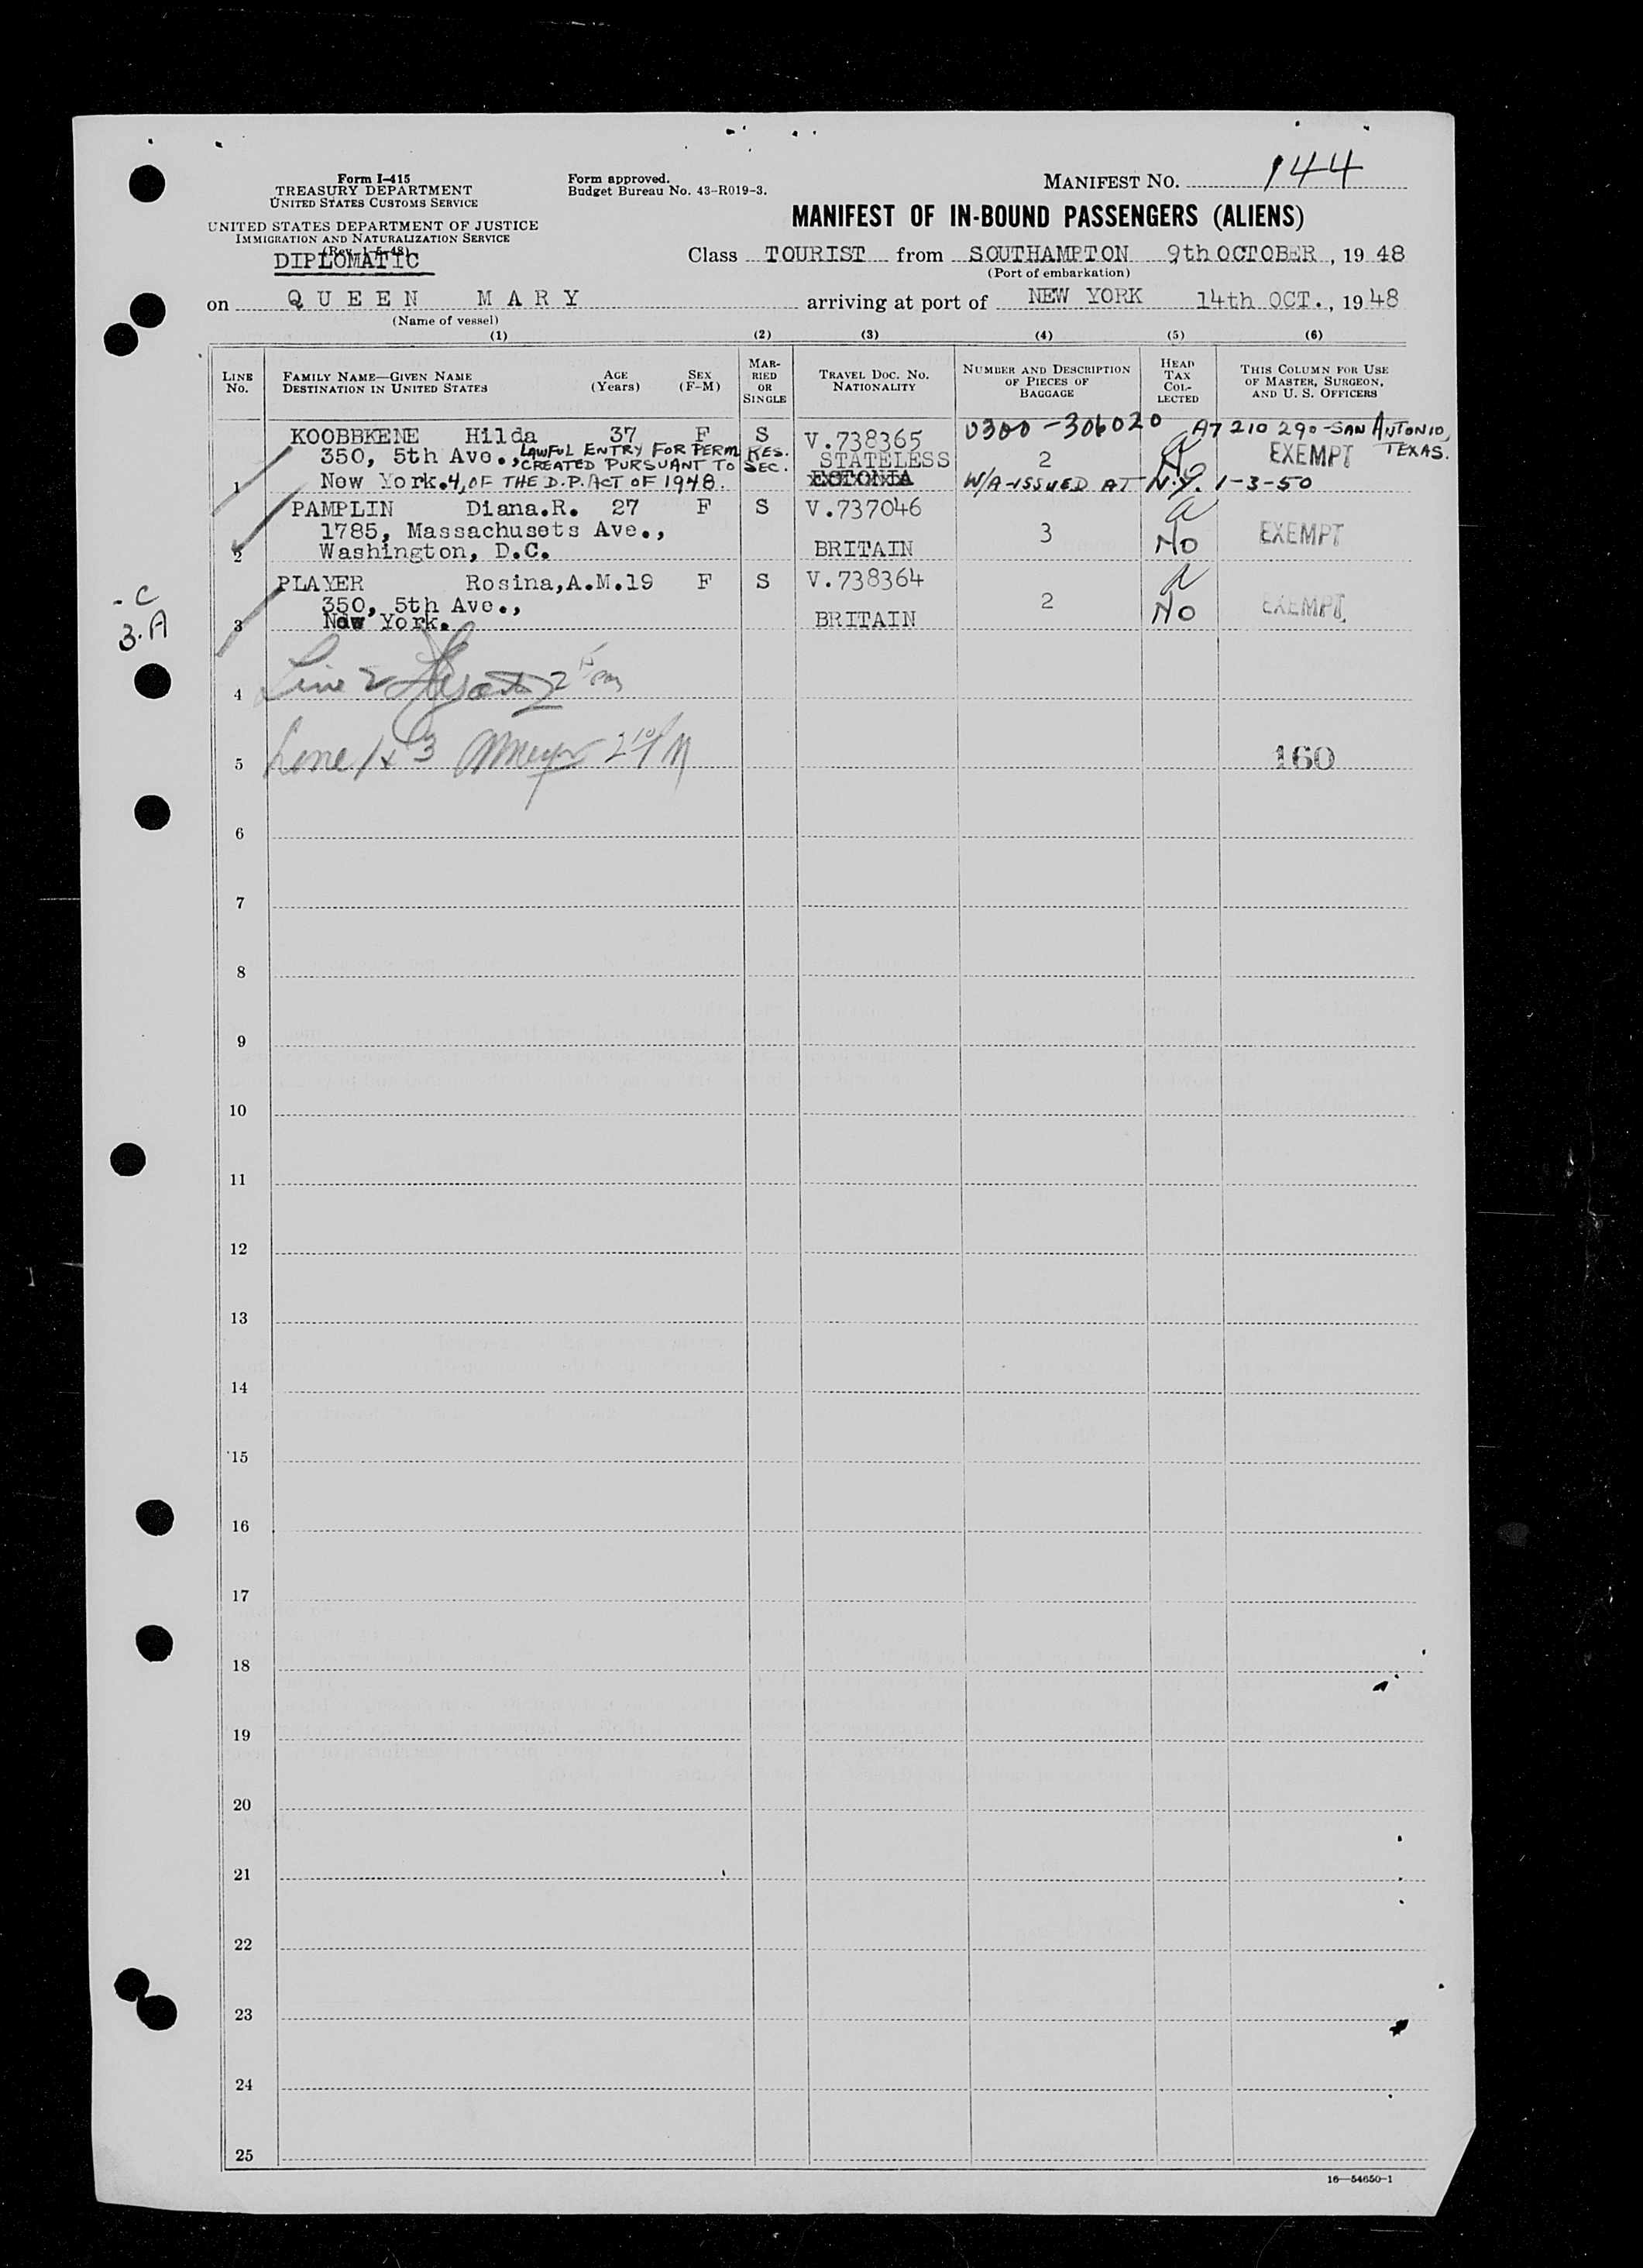 Form I-415
TREASURY DEPARTMENT
UNITED STATES CUSTOMS SERVICE
UNITED STATES DEPARTMENT OF JUSTICE
IMMIGRATION AND NATURALIZATION SERVICE
(Rev. 1-5-48)
DIPLOMATIC
Form approved.
Budget Bureau No. 43-R019-3.
MANIFEST NO. 144
MANIFEST OF IN-BOUND PASSENGERS (ALIENS)
Class TOURIST from SOUTHAMPTON 9th OCTOBER, 1948
(Port of embarkation)
on QUEEN MARY arriving at port of NEW YORK 14th OCT., 1948
(Name of vessel)
(1) (2) (3) (4) (5) (6)
LINE No. FAMILY NAME—GIVEN NAME DESTINATION IN UNITED STATES AGE (Years) SEX (F-M) MARRIED OR SINGLE TRAVEL DOC. NO. NATIONALITY NUMBER AND DESCRIPTION OF PIECES OF BAGGAGE HEAD TAX COLLECTED THIS COLUMN FOR USE OF MASTER, SURGEON, AND U. S. OFFICERS
0300-306020 A7 210 290-SAN ANTONIO, TEXAS.
KOOBBKENE Hilda 37 F S V.738365
350, 5th Ave., LAWFUL ENTRY FOR PERM RES. STATELESS 2 No EXEMPT
CREATED PURSUANT TO SEC.
1 New York. 4, OF THE D.P. ACT OF 1948. ESTONIA W/A-ISSUED AT N.Y. 1-3-50
PAMPLIN Diana.R. 27 F S V.737046
1785, Massachusets Ave., 3 EXEMPT
2 Washington, D.C. BRITAIN No
PLAYER Rosina,A.M.19 F S V.738364
- C
350, 5th Ave., 2 No EXEMPT
3.A
3 New York. BRITAIN
4 Line 2
5 Line 1 & 3 2 10 PM 160
6
7
8
9
10
11
12
13
14
15
16
17
18
19
20
21
22
23
24
25
16—54650-1